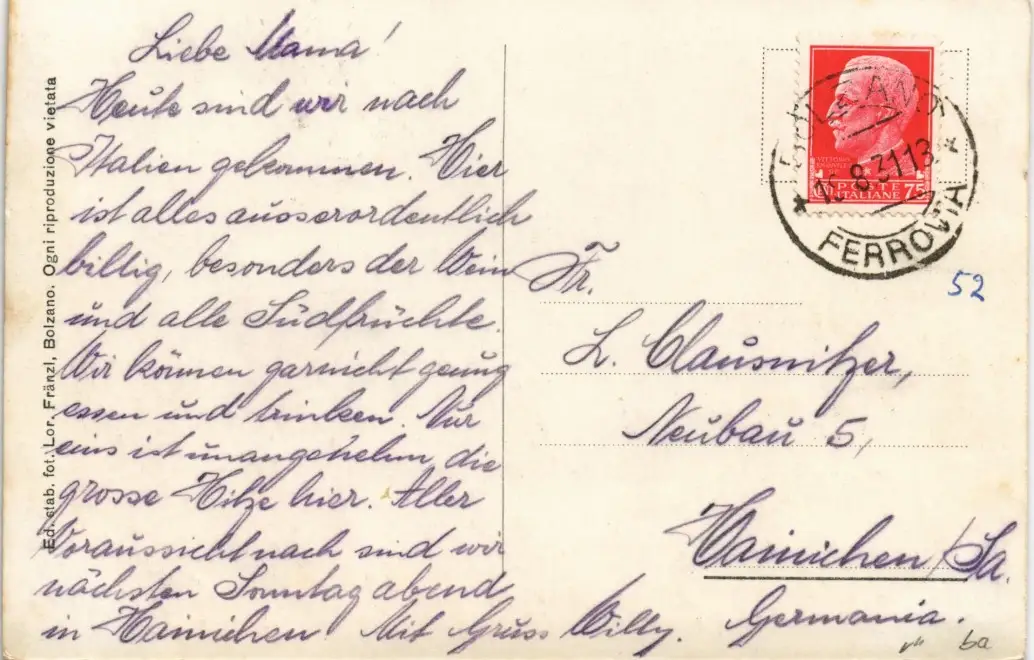 Liebe Mama!
Heute sind wir nach
Italien gekommen. Hier
ist alles ausserordentlich
billig, besonders der Wein
und alle Südfrüchte.
Wir können garnicht genug
essen und trinken. Nur
eins ist unangenehm die
grosse Hitze hier. Aller
Voraussicht nach sind wir
nächsten Sonntag abend
in Hainichen! Mit Gruss Willy.
Ed. stab. fot. Lor. Fränzl, Bolzano. Ogni riproduzione vietata
POSTE
ITALIANE
75
8.31 13
FERROVIA
52
Fr.
L. Clausnitzer,
Neubau 5,
Hainichen/Sa.
Germania.
ba